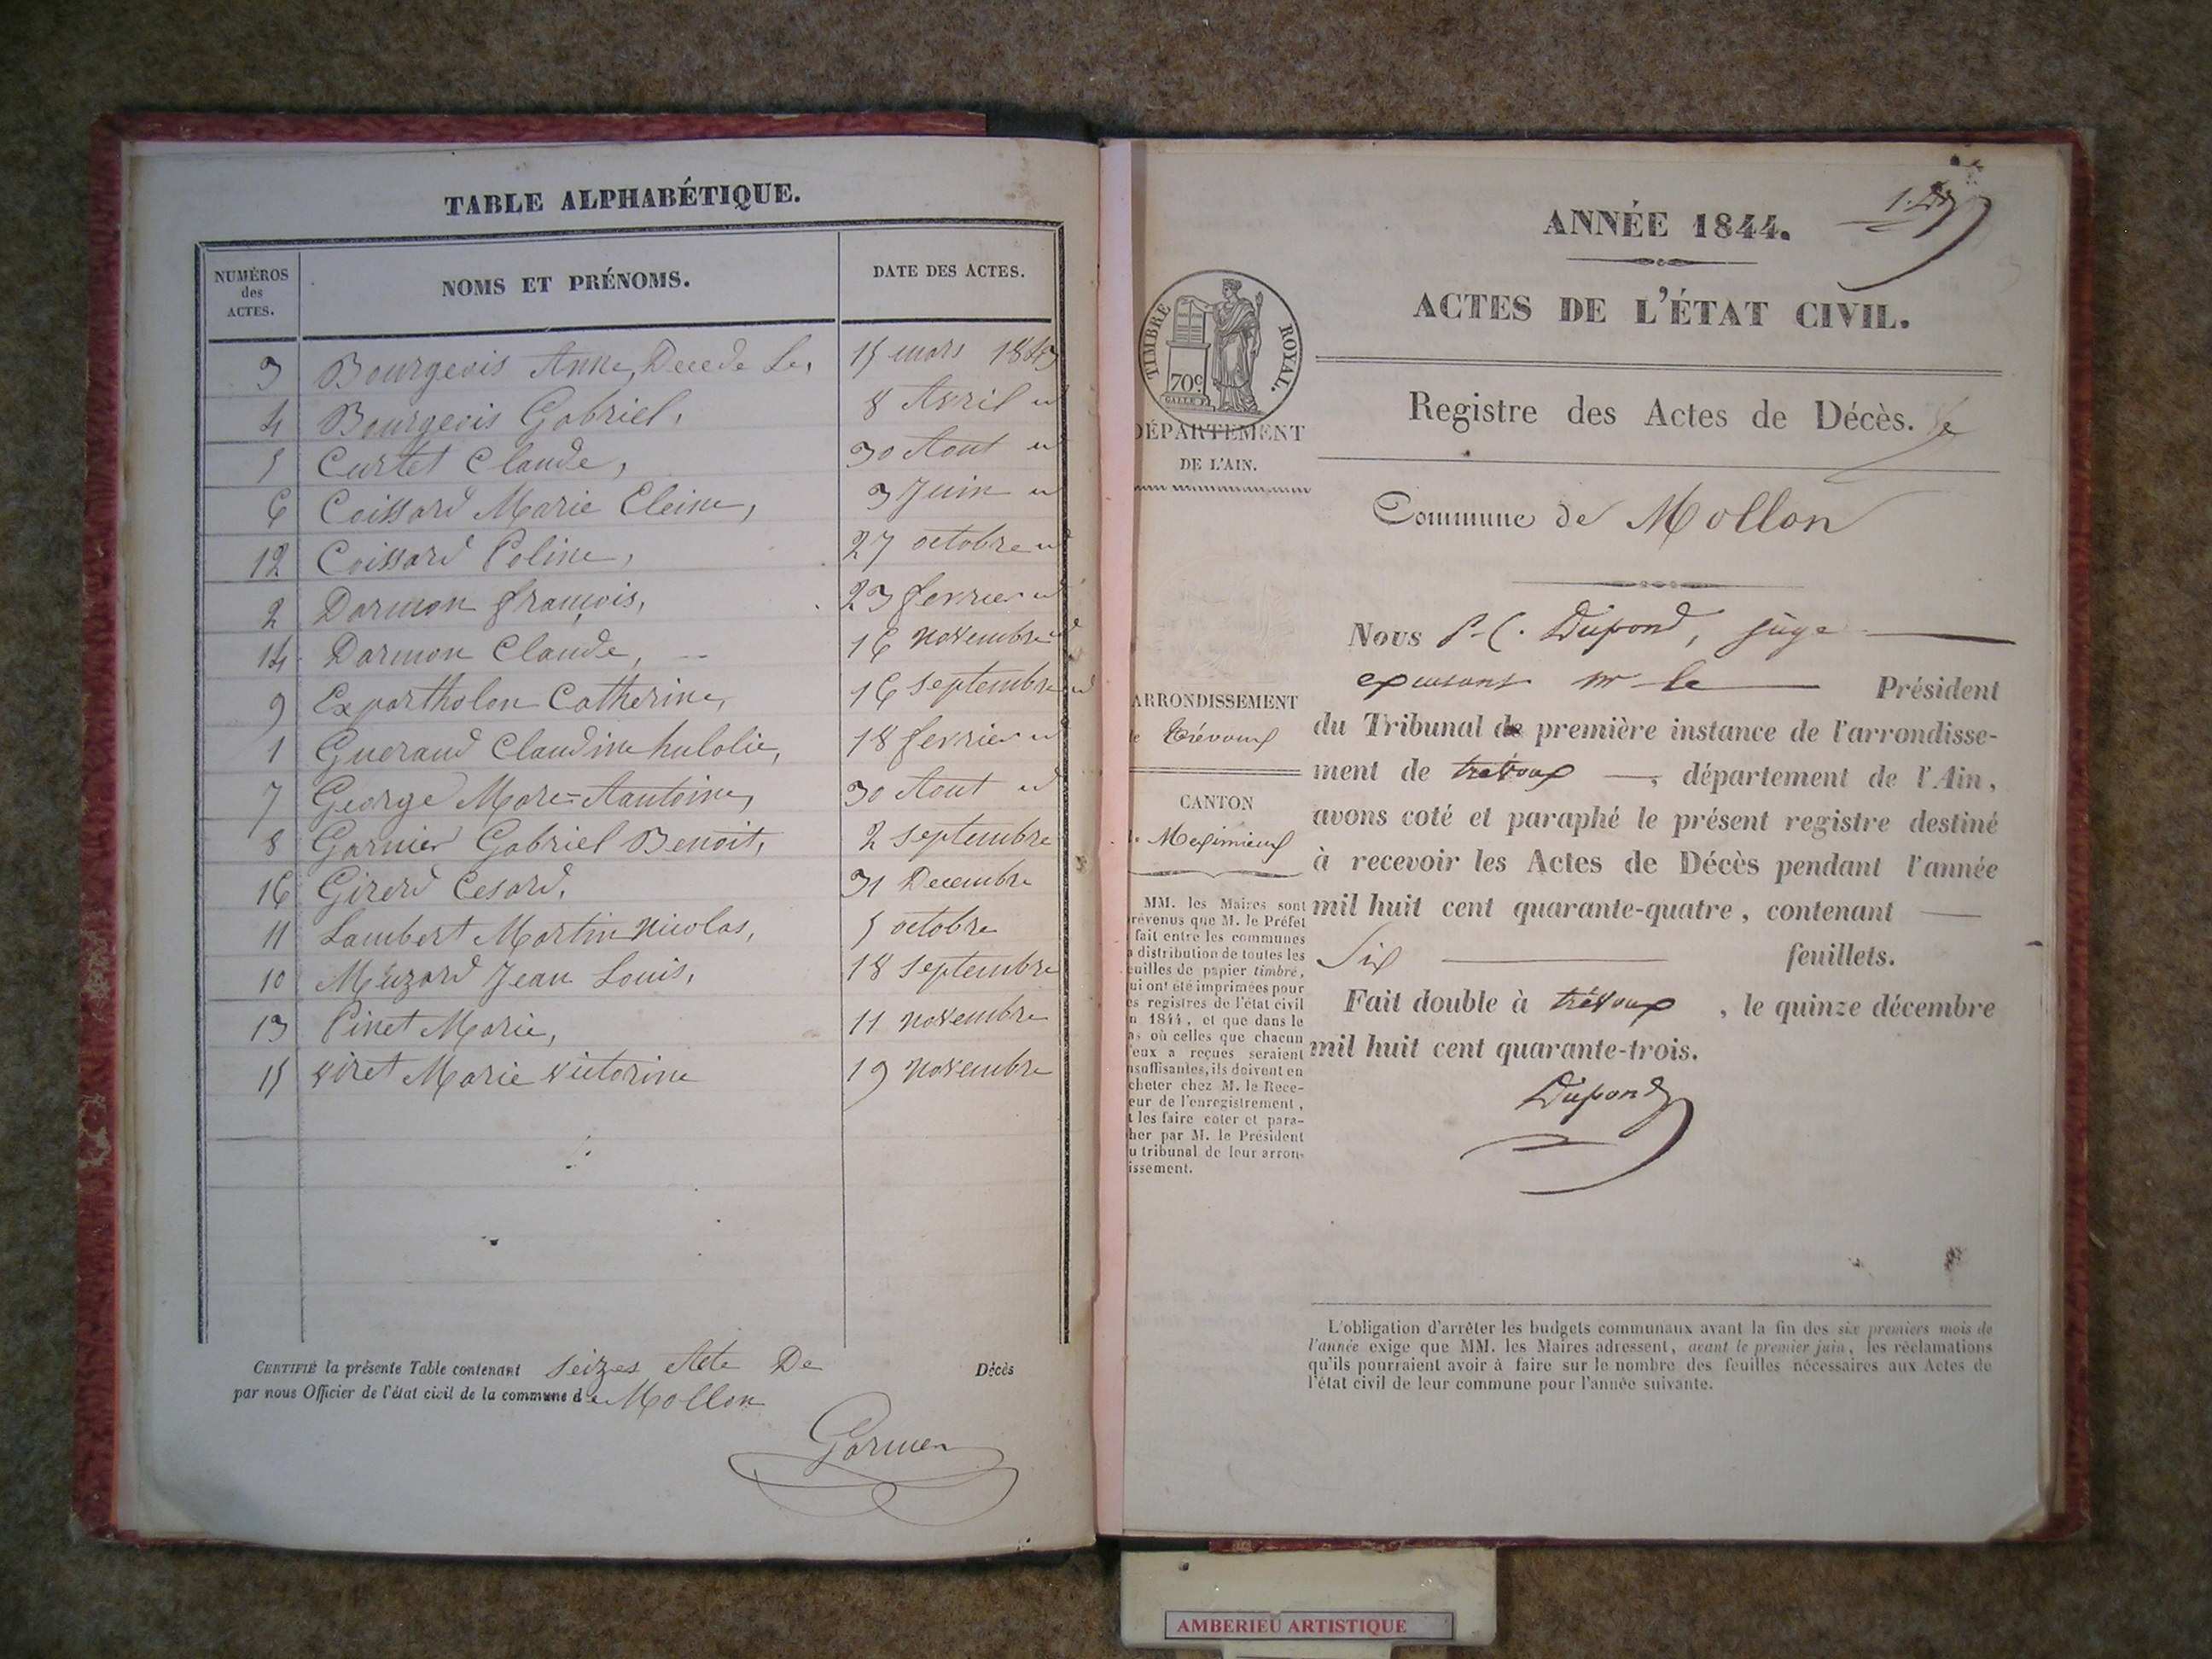 TABLE ALPHABÉTIQUE.
NUMÉROS des ACTES. NOMS ET PRÉNOMS. DATE DES ACTES.
3 Bourgeois Anne, Decede Le, 15 mars 1843
4 Bourgeois Gabriel, 8 Avril id
5 Curtet Claude, 30 Aout id
6 Coissard Marie Eleine, 3 Juin id
12 Coissard Poline, 27 octobre id
2 Dormon françois, 23 fevrier id
14 Dormon Claude, 16 novembre id
9 Exportholon Catherine, 16 septembre id
1 Gueraud Claudine hulolie, 18 fevrier id
7 George Marc=Aantoine, 30 Aout id
8 Garnier Gabriel Benoit, 2 septembre
16 Girerd Cesard, 31 Decembre
11 Lambert Martin Nicolas, 5 octobre
10 Muzard Jean Louis, 18 septembre
13 Pinet Marie, 11 novembre
15 viret Marie victorine 19 novembre
CERTIFIÉ la présente Table contenant seizes Acte De Décès
par nous Officier de l'état civil de la commune de Mollon
Garnier
ANNÉE 1844.
ACTES DE L'ÉTAT CIVIL.
TIMBRE ROYAL.
70c.
Registre des Actes de Décès.
DÉPARTEMENT
DE L'AIN.
Commune de Mollon
Nous P.C. Dupond, juge
excusant mr le Président
ARRONDISSEMENT
de Trévoux
du Tribunal de première instance de l'arrondisse-
ment de trévoux —, département de l'Ain,
CANTON
de Meximieux
avons coté et paraphé le présent registre destiné
à recevoir les Actes de Décès pendant l'année
mil huit cent quarante-quatre, contenant —
Six feuillets.
Fait double à trévoux, le quinze décembre
mil huit cent quarante-trois.
Dupond
MM. les Maires sont
révenus que M. le Préfet
fait entre les communes
a distribution de toutes les
euilles de papier timbré,
ui ont été imprimées pour
es registres de l'état civil
n 1844, et que dans le
as où celles que chacun
'eux a reçues seraient
nsuffisantes, ils doivent en
cheter chez M. le Rece-
eur de l'enregistrement,
t les faire coter et para-
her par M. le Président
u tribunal de leur arron-
issement.
L'obligation d'arrêter les budgets communaux avant la fin des six premiers mois de
l'année exige que MM. les Maires adressent, avant le premier juin, les réclamations
qu'ils pourraient avoir à faire sur le nombre des feuilles nécessaires aux Actes de
l'état civil de leur commune pour l'année suivante.
AMBERIEU ARTISTIQUE